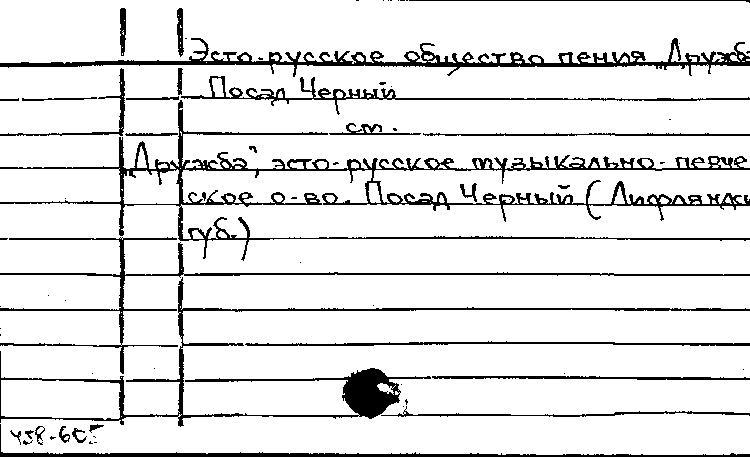 Эсто-русское общество пения „Дружба
Посад Черный
см.
„Дружба", эсто-русское музыкально-певче
ское о-во. Посад Черный (Лифляндск
губ.)